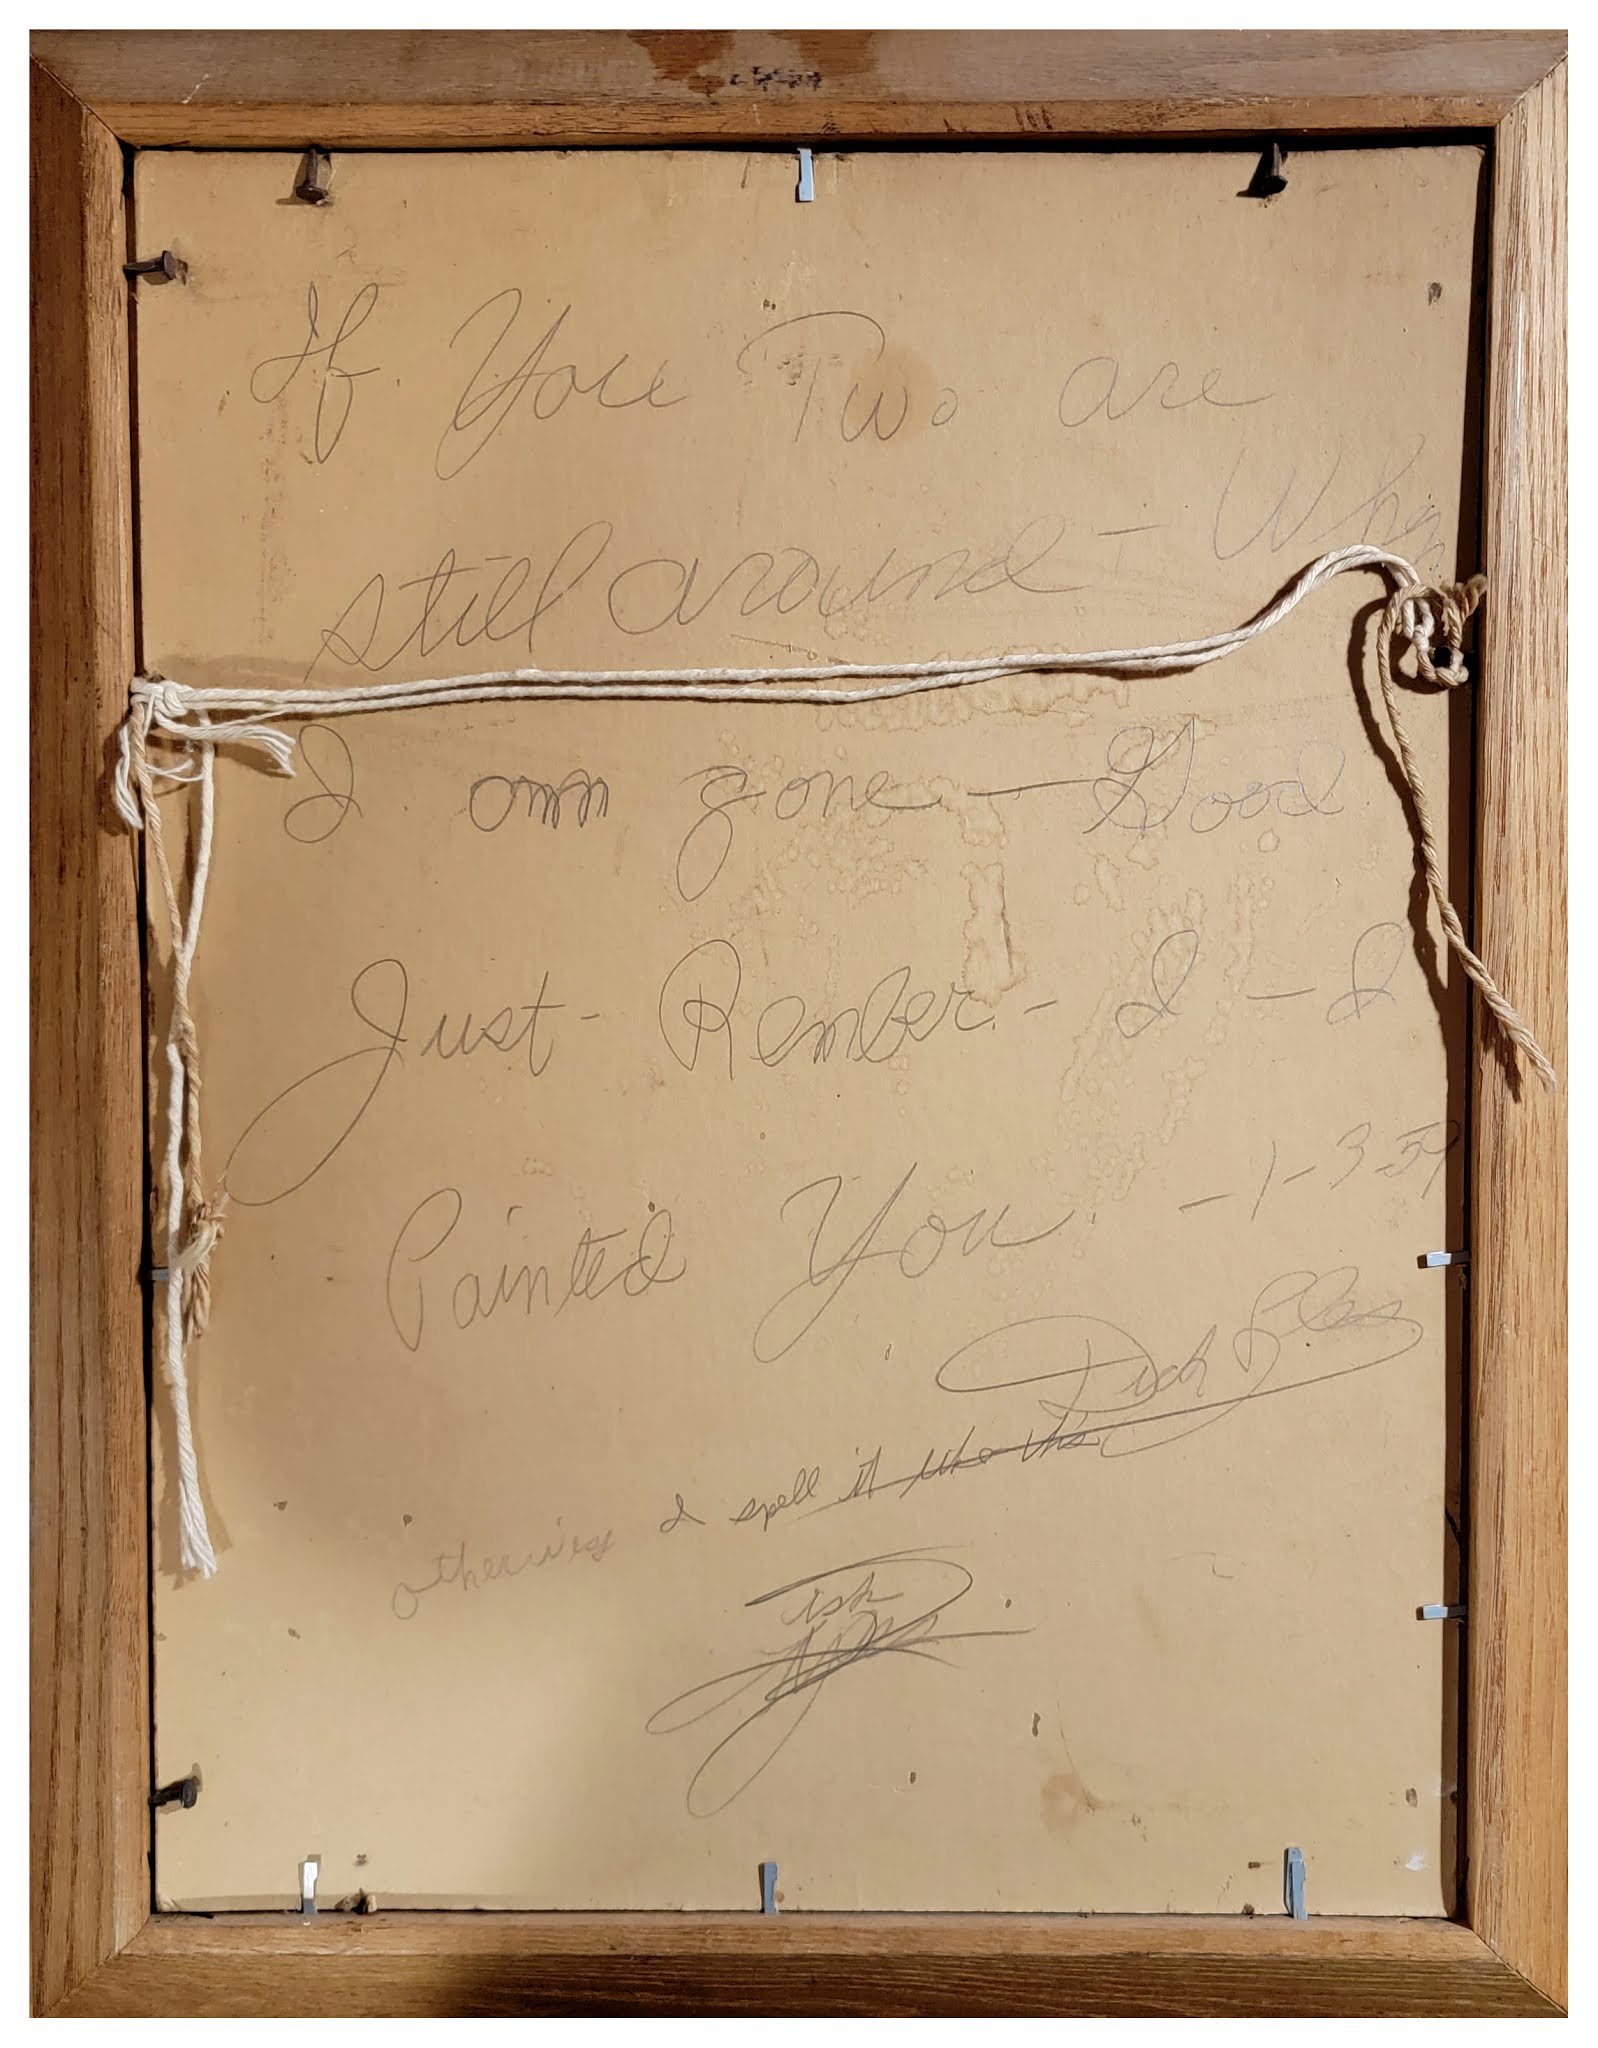 If You Two are
still around - When
I am gone - Good
Just - Rember - I - I
Painted You - 1-3-59
Dick
otherwise I spell it like this